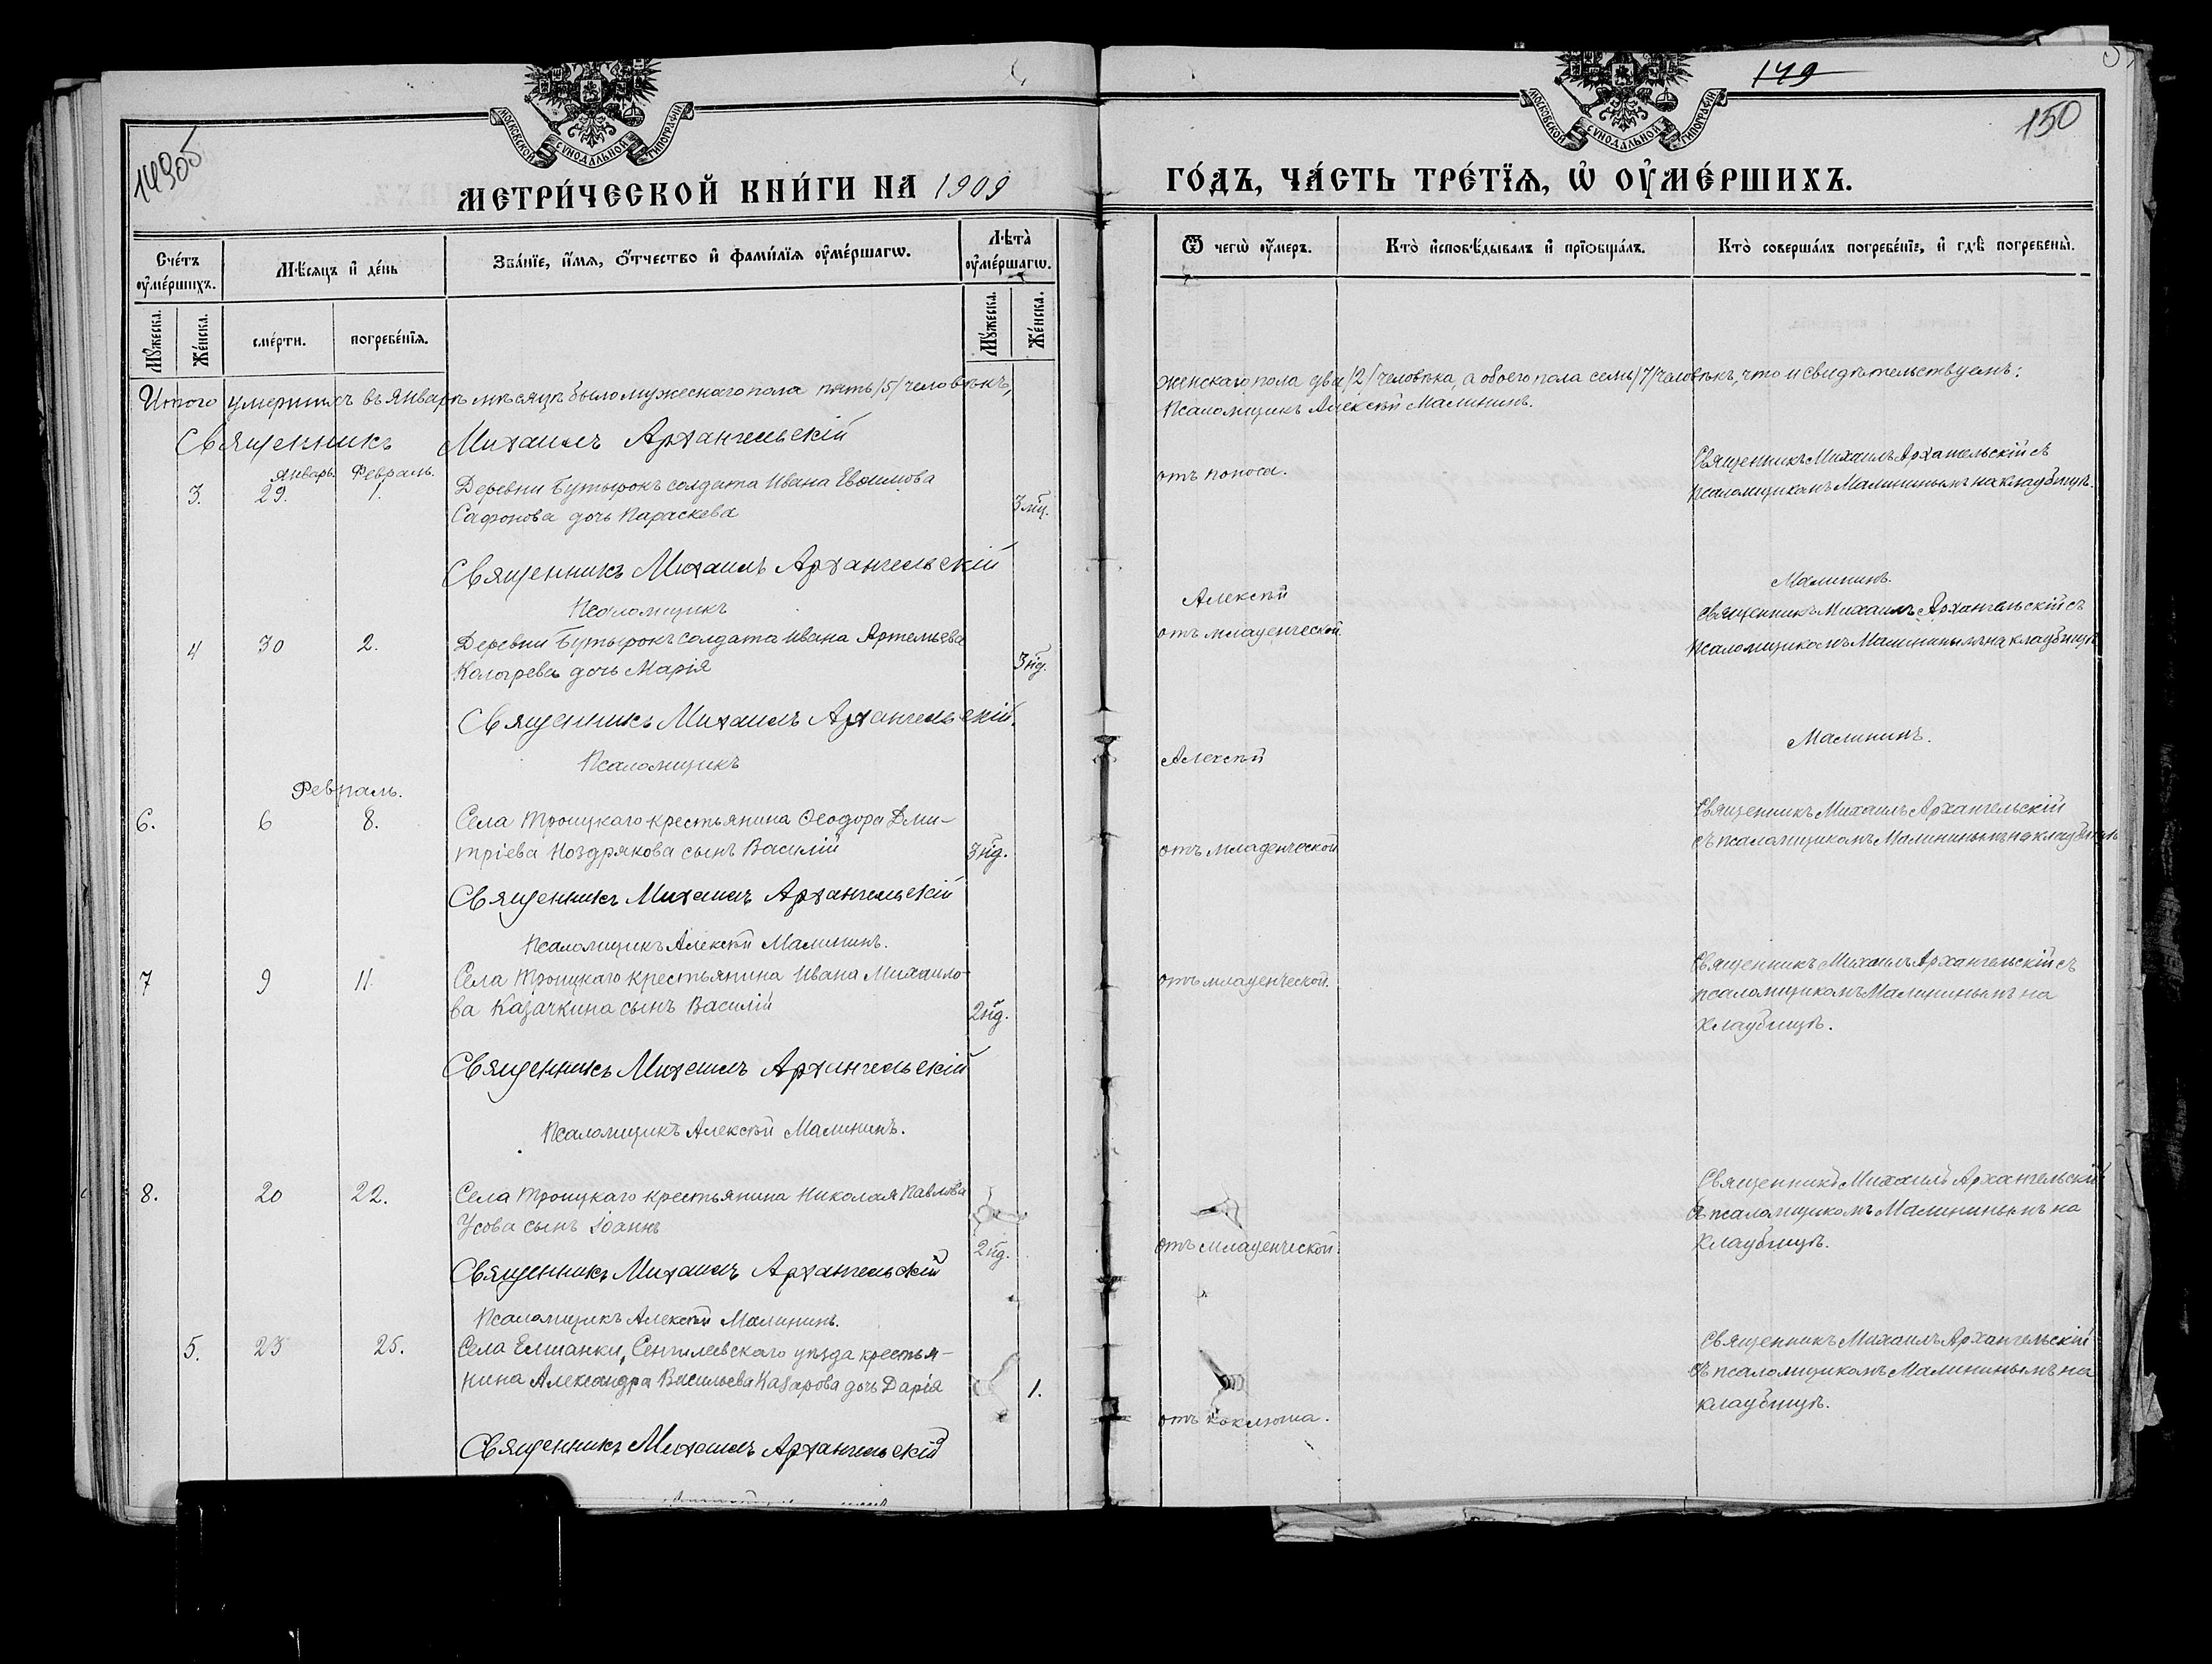 149
14905
150
МОСКОВСКОЙ СѴНОДАЛЬНОЙ ТИПОГРАФІИ
МОСКОВСКОЙ СѴНОДАЛЬНОЙ ТИПОГРАФІИ
МЕТРИ́ЧЕСКОЙ КНИ́ГИ НА 1909 ГО́ДЪ, ЧА́СТЬ ТРЕ́ТЇѦ, Ѡ҆ ОУ҆МЕ́РШИХЪ.
Сче́тъ оу҆ме́ршихъ.
Мѣ́сѧцъ и҆ де́нь
Зва́нїе, и҆́мѧ, ѻ҆́тчество и҆ фами́лїѧ оу҆ме́ршагѡ.
Лѣ́та̀ оу҆ме́ршагѡ.
Ѿ чегѡ̀ оу҆́меръ.
Кто̀ и҆сповѣ́дывалъ и҆ прїѻбща́лъ.
Кто̀ соверша́лъ погребе́нїе, и҆ гдѣ̀ погребены̀.
Мꙋ́жеска.
Же́нска.
сме́рти.
погребе́нїѧ.
Мꙋ́жеска.
Же́нска.
Итого умершихъ въ январѣ мѣсяцѣ было мужескаго пола пять /5/ человѣкъ, женскаго пола два /2/ человѣка, а обоего пола семь /7/ человѣкъ, что и свидѣтельствуемъ:
Псаломщикъ Алексѣй Малининъ.
Священникъ Михаилъ Архангельскій
Январь. Февраль.
3. 29. 1. Деревни Бутырокъ солдата Ивана Евѳимова
Сафонова дочь Параскева
3 мц.
отъ поноса.
Священникъ Михаилъ Архангельскій съ
псаломщикомъ Малининымъ на кладбищѣ.
Священникъ Михаилъ Архангельскій
Псаломщикъ Алексѣй Малининъ.
4 30 2. Деревни Бутырокъ солдата Ивана Артемьева
Кологрева дочь Марія
3 нд.
отъ младенческой
Священникъ Михаилъ Архангельскій съ
псаломщикомъ Малининымъ на кладбищѣ
Священникъ Михаилъ Архангельскій.
Псаломщикъ Алексѣй Малининъ.
Февраль.
6. 6 8. Села Троицкаго крестьянина Ѳеодора Дми-
тріева Ноздрякова сынъ Василій
3 нд.
отъ младенческой
Священникъ Михаилъ Архангельскій
съ псаломщикомъ Малининымъ на кладбищѣ
Священникъ Михаилъ Архангельскій
Псаломщикъ Алексѣй Малининъ.
7 9 11. Села Троицкаго крестьянина Ивана Михайло-
ва Казачкина сынъ Василій
2 нд.
отъ младенческой.
Священникъ Михаилъ Архангельскій съ
псаломщикомъ Малининымъ на
кладбищѣ.
Священникъ Михаилъ Архангельскій
Псаломщикъ Алексѣй Малининъ.
8. 20 22. Села Троицкаго крестьянина Николая Павлова
Усова сынъ Іоаннъ
2 нд.
отъ младенческой
Священникъ Михаилъ Архангельскій
съ псаломщикомъ Малининымъ на
кладбищѣ.
Священникъ Михаилъ Архангельскій
Псаломщикъ Алексѣй Малининъ.
5. 23 25. Села Елшанки, Сенгилеевскаго уѣзда крестья-
нина Александра Васильева Назарова дочь Дарія
1.
отъ коклюша.
Священникъ Михаилъ Архангельскій
съ псаломщикомъ Малининымъ на
кладбищѣ.
Священникъ Михаилъ Архангельскій